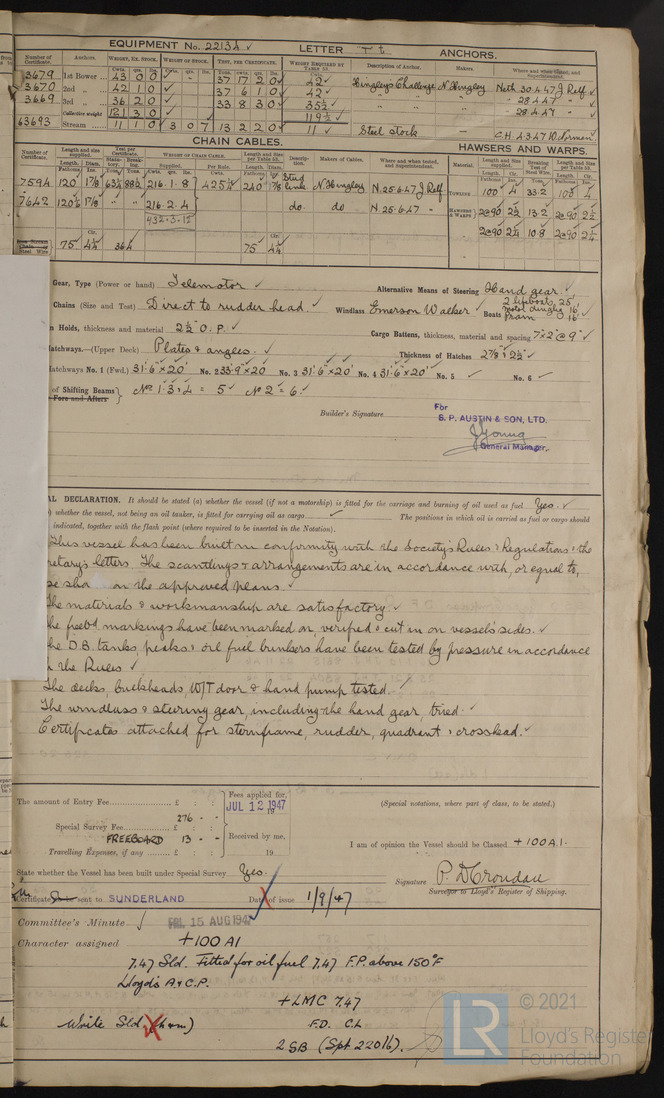 EQUIPMENT No. 22134 ✓ LETTER "T t" ANCHORS.
Number of Certificate. Anchors. WEIGHT, EX. STOCK. WEIGHT OF STOCK. TEST, PER CERTIFICATE. WEIGHT REQUIRED BY TABLE 53. Description of Anchor. Makers. Where and when tested, and Superintendent.
3679 1st Bower 43 0 0 37 17 2 0 ✓ 42 ✓ Hingley's Challenge N. Hingley Neth 30.4.47 J Relf ✓
3670 2nd 42 1 0 37 6 1 0 ✓ 42 ✓ " " " 28.4.47 "
3669 3rd 36 2 0 33 8 3 0 ✓ 35½ ✓ " " " 28.4.47 "
Collective weight 121 3 0 119½ ✓
63693 Stream 11 1 0 ✓ 3 0 7 13 2 2 0 ✓ 11 ✓ Steel stock CH. 4.3.47
CHAIN CABLES. HAWSERS AND WARPS.
Number of Certificate. Length and size supplied. Test per Certificate. WEIGHT OF CHAIN CABLE. Length and size per Table 53. Description. Makers of Cables. Where and when tested, and Superintendent. Material. Length and size supplied. Breaking Test of Steel Wire. Length and size per Table 53.
Length. Diam. Statutory. Breaking. Supplied. Per Rule. Length. Diam.
7594 120 1 7/8 63¼ 88½ 216.1.8 425½ 240 1 7/8 Stud link N. Hingley N. 25.6.47 J Relf TOWLINE 100 4 33.2 100 4
7642 120½ 1 7/8 " " 216.2.4 do do N. 25.6.47 " HAWSERS & WARPS 2@90 2½ 13.2 2@90 2½
432.3.12 2@90 2¼ 10.8 2@90 2¼
Steel Wire 75 4¼ 36.4 75 4¼
Gear, Type (Power or hand) Telemotor ✓ Alternative Means of Steering Hand gear. ✓
Chains (Size and Test) Direct to rudder head. ✓ Windlass Emerson Walker ✓ Boats 2 lifeboats, 25' motor dinghy 16' Pram 16'
n Holds, thickness and material 2½" O. P. ✓ Cargo Battens, thickness, material and spacing 7"×2" @ 9" ✓
atchways.—(Upper Deck) Plates & angles. ✓ Thickness of Hatches 2 7/8 & 2½" ✓
atchways No. 1 (Fwd.) 31'.6"×20' No. 2 33'.9"×20' No. 3 31'.6"×20' No. 4 31'.6"×20' No. 5 ✓ No. 6 ✓
of Shifting Beams Fore and Afters } Nos 1.3 & 4 = 5 ✓ No 2 = 6. ✓
Builder's Signature
For
S. P. AUSTIN & SON, LTD.
J Young
General Manager.
AL DECLARATION. It should be stated (a) whether the vessel (if not a motorship) is fitted for the carriage and burning of oil used as fuel Yes. ✓
) whether the vessel, not being an oil tanker, is fitted for carrying oil as cargo ✓ The positions in which oil is carried as fuel or cargo should
indicated, together with the flash point (where required to be inserted in the Notation).
This vessel has been built in conformity with the Society's Rules & Regulations & the
retary's letters. The scantlings & arrangements are in accordance with, or equal to,
se sho on the approved plans. ✓
The materials & workmanship are satisfactory ✓
he freebd markings have been marked on verified & cut in on vessel's sides. ✓
he D.B. tanks, peaks & oil fuel bunkers have been tested by pressure in accordance
the Rules ✓
The decks, bulkheads, W/T door & hand pump tested. ✓
The windlass & steering gear, including the hand gear, tried. ✓
Certificates attached for sternframe, rudder, quadrant & crosshead. ✓
The amount of Entry Fee £ : :
Special Survey Fee 276 - -
FREEBOARD 13 - -
Travelling Expenses, if any £ : :
Fees applied for,
JUL 12 1947
Received by me,
19
(Special notations, where part of class, to be stated.)
I am of opinion the Vessel should be Classed + 100 A.1.
State whether the Vessel has been built under Special Survey Yes.
Signature
Surveyor to Lloyd's Register of Shipping.
Certificate sent to SUNDERLAND Date of issue 1/9/47
Committee's Minute FRI. 15 AUG 1947
Character assigned +100 A1
7.47 Sld. Fitted for oil fuel 7.47 F.P. above 150°F
Lloyd's A & C.P.
+ LMC 7.47
Write Sld. F.D. C.L
2 SB (Spt 220 lb).
LR © 2021
Lloyd's Register
Foundation